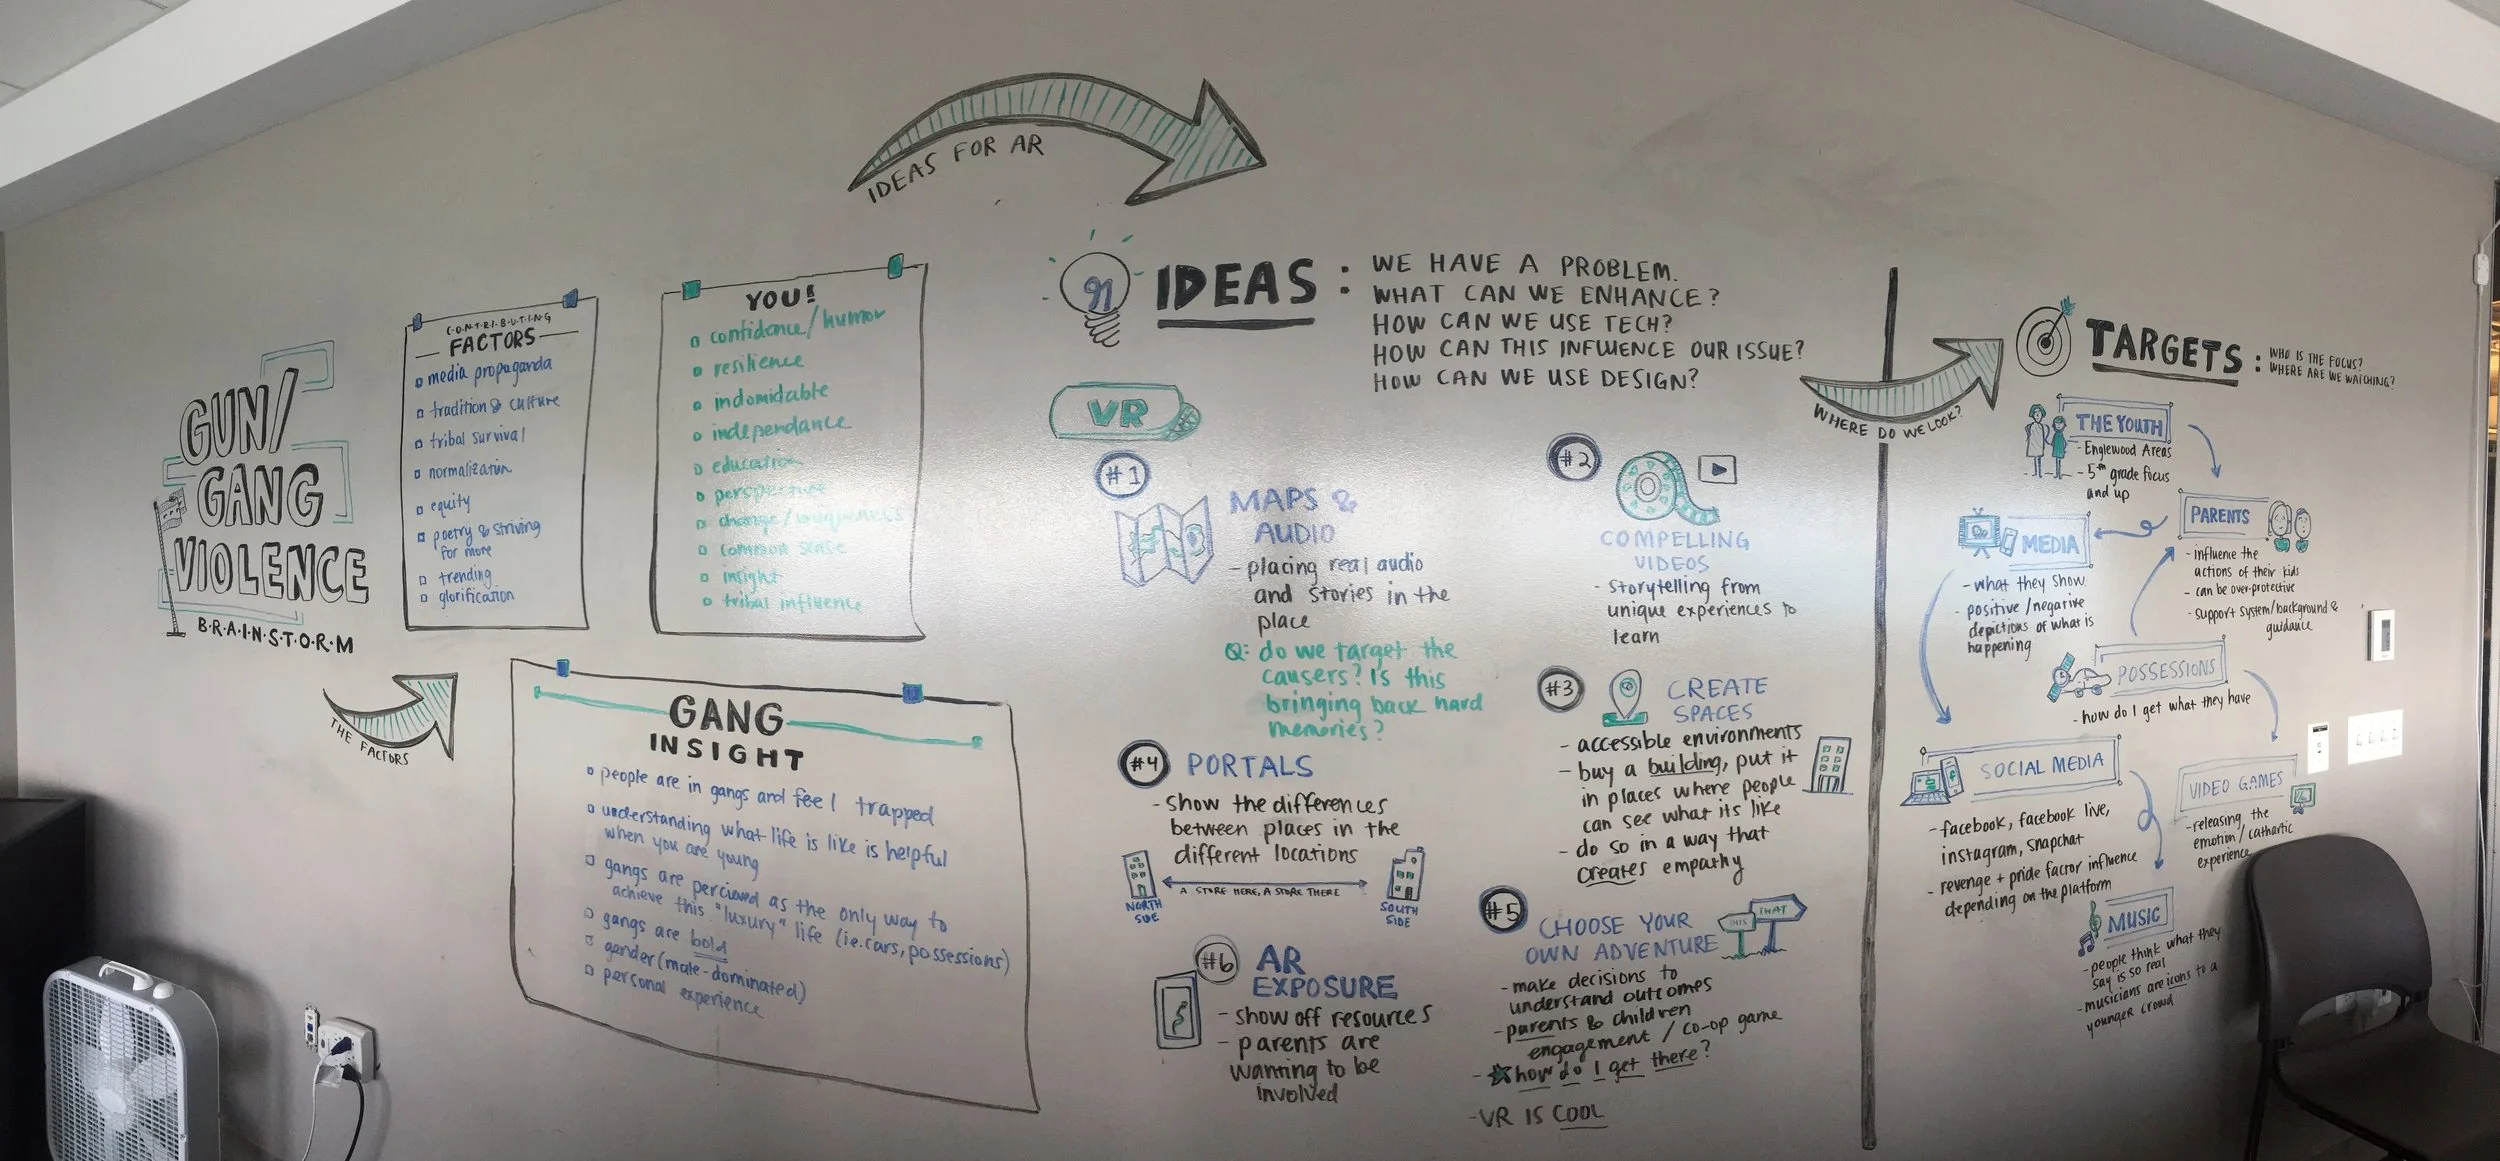 GUN/
GANG
VIOLENCE
B·R·A·I·N·S·T·O·R·M
THE FACTORS
C·O·N·T·R·I·B·U·T·I·N·G
FACTORS
media propaganda
tradition & culture
tribal survival
normalization
equity
poetry & striving
for more
trending
glorification
YOU!
confidence/humor
resilience
indomidable
independance
education
perspective
change/uniqueness
common sense
insight
tribal influence
GANG
INSIGHT
people are in gangs and feel trapped
understanding what life is like is helpful
when you are young
gangs are percieved as the only way to
achieve this "luxury" life (ie. cars, possessions)
gangs are bold
gender (male-dominated)
personal experience
IDEAS FOR AR
IDEAS:
WE HAVE A PROBLEM.
WHAT CAN WE ENHANCE?
HOW CAN WE USE TECH?
HOW CAN THIS INFLUENCE OUR ISSUE?
HOW CAN WE USE DESIGN?
VR
#1
MAPS &
AUDIO
- placing real audio
and stories in the
place
Q: do we target the
causers? Is this
bringing back hard
memories?
#2
COMPELLING
VIDEOS
- storytelling from
unique experiences to
learn
#3
CREATE
SPACES
- accessible environments
- buy a building, put it
in places where people
can see what its like
- do so in a way that
creates empathy
#4
PORTALS
- show the differences
between places in the
different locations
A STORE HERE, A STORE THERE
NORTH
SIDE
SOUTH
SIDE
#5
CHOOSE YOUR
OWN ADVENTURE
THIS
THAT
- make decisions to
understand outcomes
- parents & children
engagement / co-op game
- how do I get there?
- VR IS COOL
#6
AR
EXPOSURE
- show off resources
- parents are
wanting to be
involved
WHERE DO WE LOOK?
TARGETS:
WHO IS THE FOCUS?
WHERE ARE WE WATCHING?
THE YOUTH
- Englewood Areas
- 5th grade focus
and up
PARENTS
- influence the
actions of their kids
- can be over-protective
- support system/background &
guidance
MEDIA
- what they show
- positive/negative
depictions of what is
happening
POSSESSIONS
- how do I get what they have
SOCIAL MEDIA
- facebook, facebook live,
instagram, snapchat
- revenge + pride factor influence
depending on the platform
VIDEO GAMES
- releasing the
emotion/cathartic
experience
MUSIC
- people think what they
say is so real
- musicians are icons to a
younger crowd